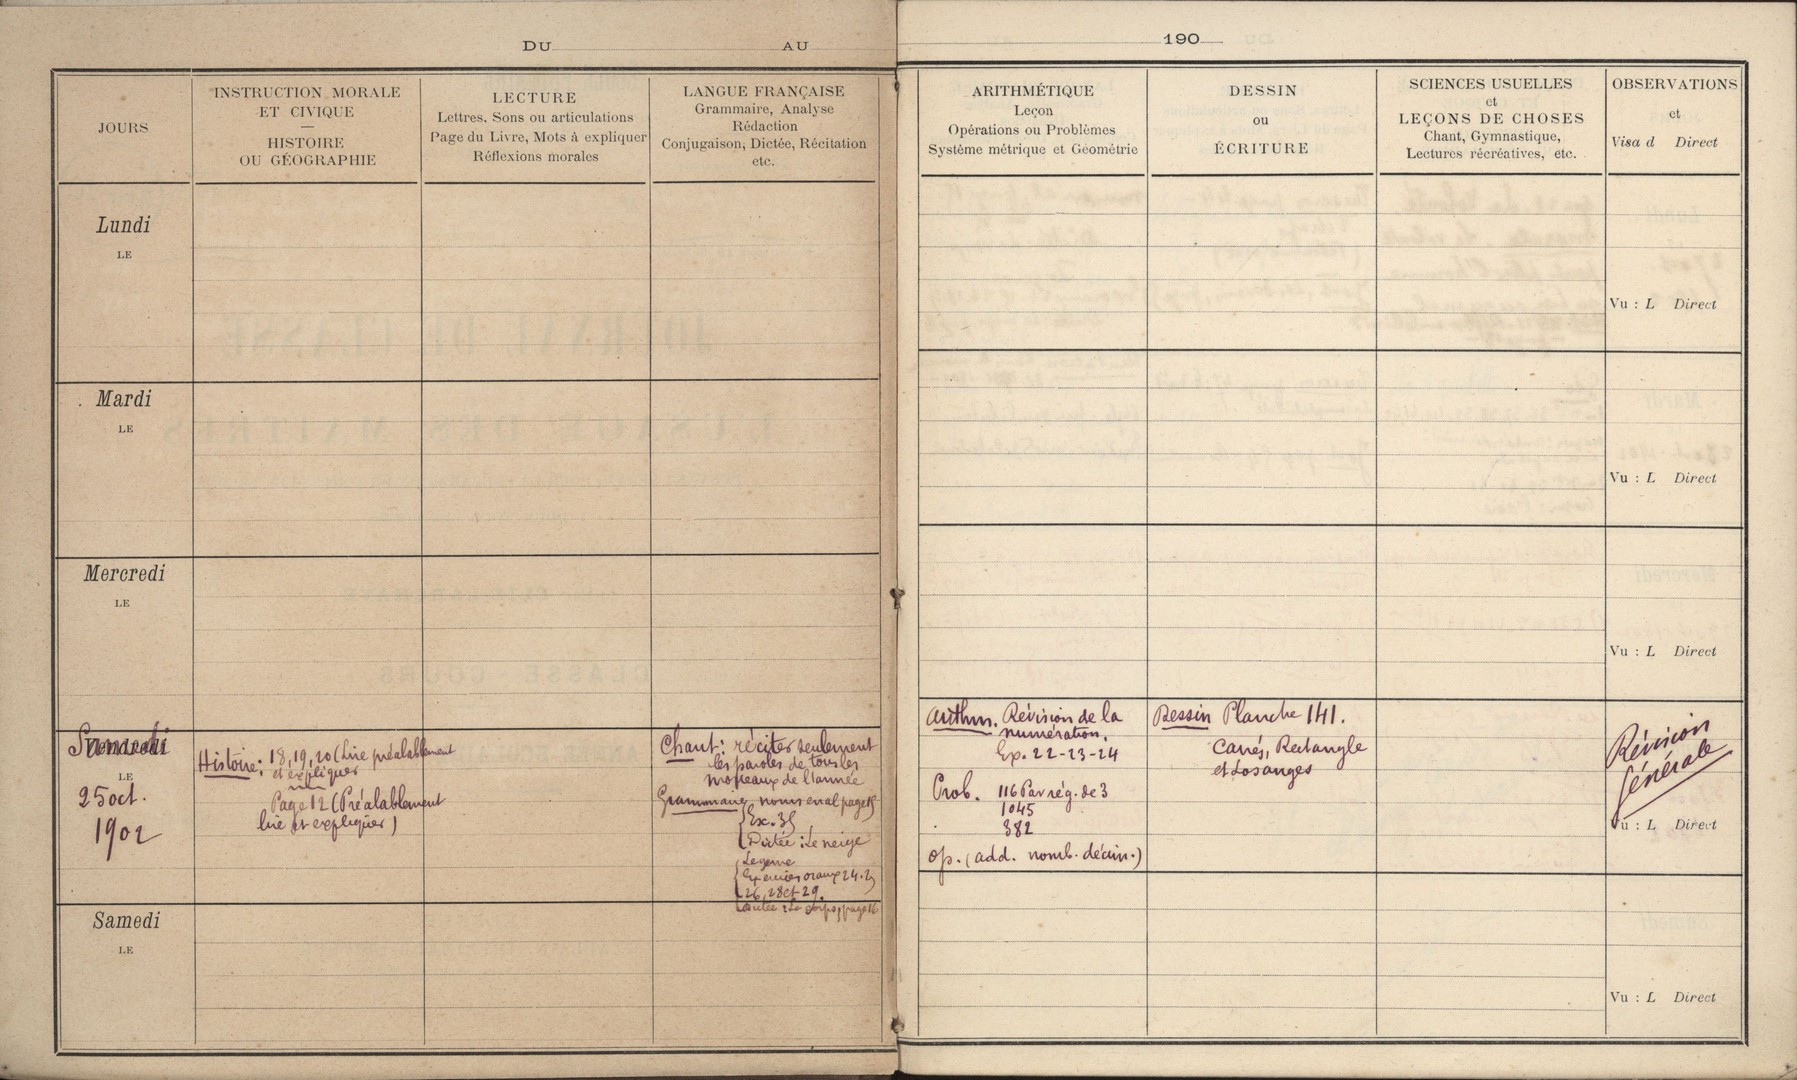 DU AU
190
JOURS
INSTRUCTION MORALE
ET CIVIQUE
—
HISTOIRE
OU GÉOGRAPHIE
LECTURE
Lettres, Sons ou articulations
Page du Livre, Mots à expliquer
Réflexions morales
LANGUE FRANÇAISE
Grammaire, Analyse
Rédaction
Conjugaison, Dictée, Récitation
etc.
ARITHMÉTIQUE
Leçon
Opérations ou Problèmes
Système métrique et Géométrie
DESSIN
OU
ÉCRITURE
SCIENCES USUELLES
et
LEÇONS DE CHOSES
Chant, Gymnastique,
Lectures récréatives, etc.
OBSERVATIONS
et
Visa d Direct
Lundi
LE
Vu : L Direct
Mardi
LE
Vu : L Direct
Mercredi
LE
Vu : L Direct
LE
25 oct.
1902
Histoire: 18, 19, 20 (Lire préalablement
et expliquer
Page 12 (Préalablement
lire et expliquer)
Chant: réciter seulement
les paroles de tous les
morceaux de l'année
Grammaire
Ex. 35
Dictée : Le neige
Exercices oraux 24.25
26, 28 et 29.
Dictée : Le corps, page 16
Arithm. Révision de la
numération.
Ex. 22-23-24
Prob. 116 Par rég. de 3
1045
382
op. (add. nomb. décim.)
Dessin Planche 141.
Carrés, Rectangle
et Losanges
Révision
générale
Vu : L Direct
Samedi
LE
Vu : L Direct